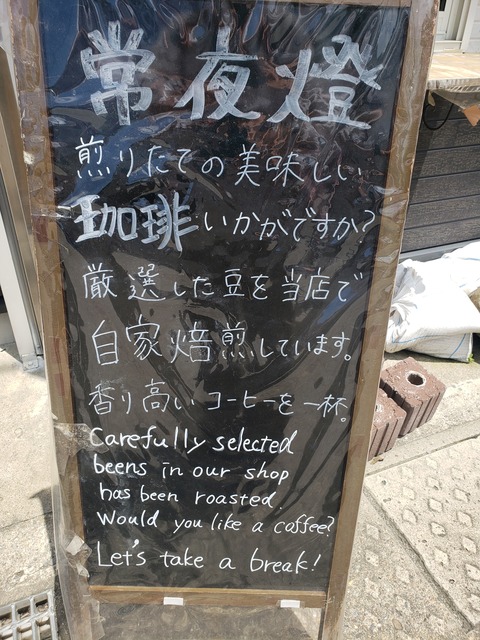 常夜燈
煎りたての美味しい
珈琲いかがですか?
厳選した豆を当店で
自家焙煎しています。
香り高いコーヒーを一杯。
Carefully selected
beens in our shop
has been roasted.
Would you like a coffee?
Let's take a break!